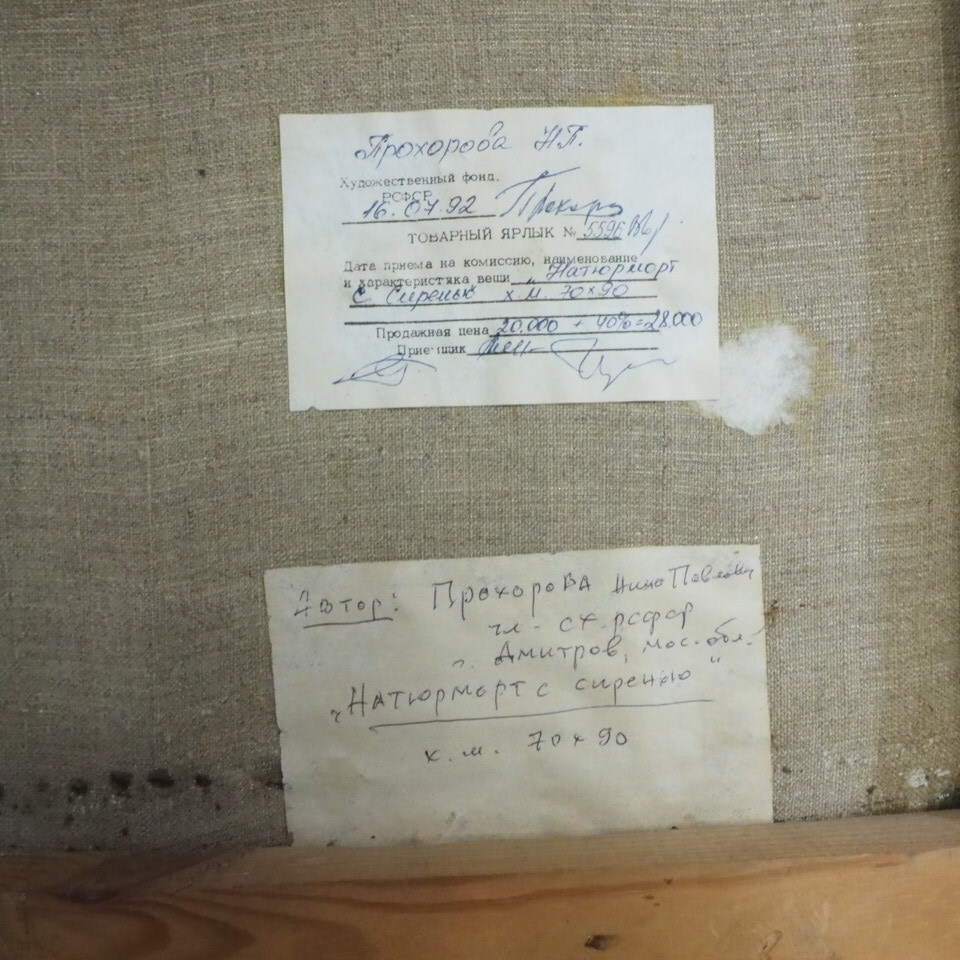 Прохорова Н.П.
Художественный фонд.
РСФСР
16.07.92
ТОВАРНЫЙ ЯРЛЫК № 5596
Дата приема на комиссию, наименование
и характеристика вещи „Натюрморт
с сиренью х.м. 70×90
Продажная цена 20.000 + 40%=28.000
Приемщик
Автор: Прохорова Нина Павловн
чл - СХ. РСФСР
г. Дмитров, мос. обл.
„Натюрморт с сиренью"
х.м. 70×90